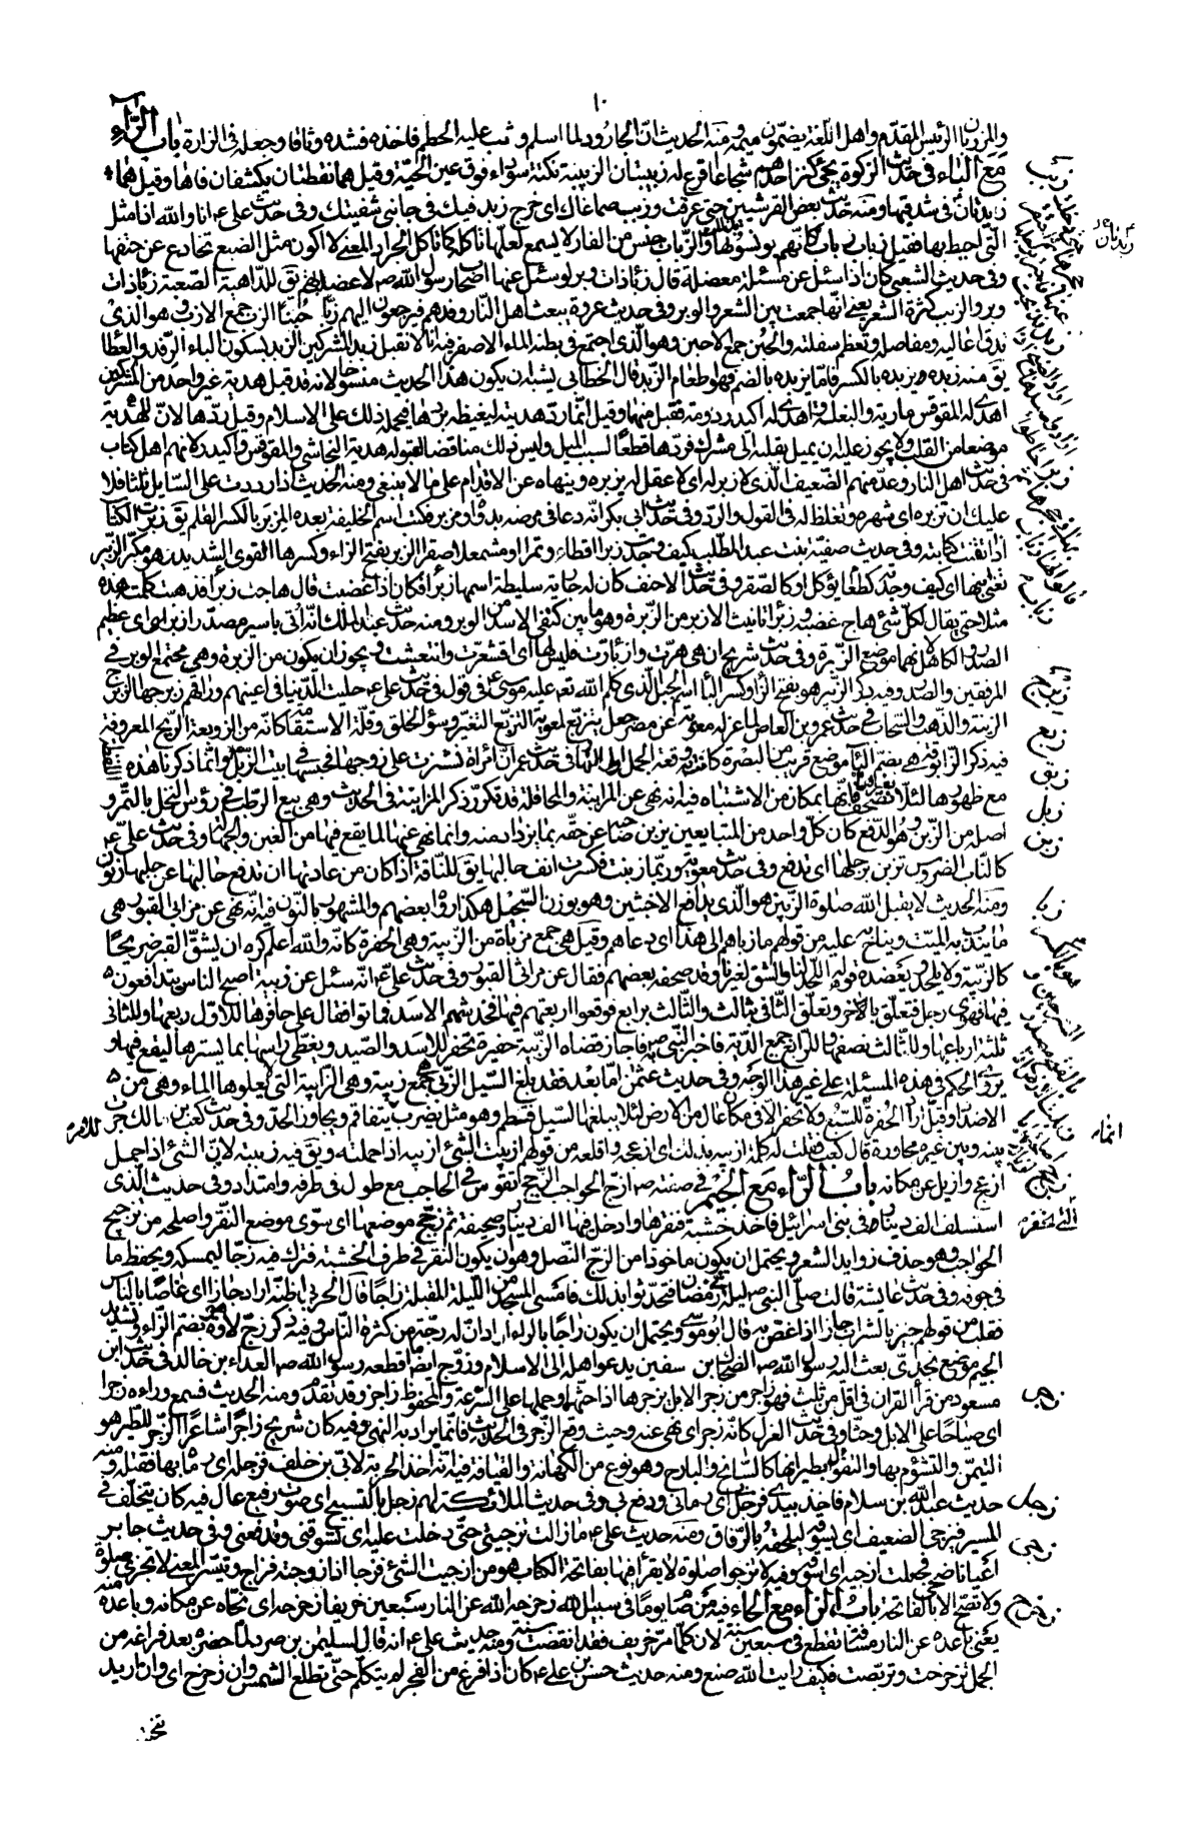 ١٠
والمرزبان الرئيس المقدم واهل اللغة يضمون ميمه ومنه الحديث ان الجارود لما اسلم وثب عليه الحطم فاخذه فشده وثاقا وجعله فى الزارة باب الزاء
مع الباء فى حديث الزكوة يجئ كنز احدهم شجاعا اقرع له زبيبتان الزبيبة نكتة سوداء فوق عين الحية وقيل هما نقطتان يكتنفان فاها وقيل هما
زبدتان فى شدقيها ومنه حديث بعض القرشيين حتى عرقت وزبب صماغاك اى خرج زبد فيك فى جانبى شفتيك وفى حديث على انا والله اذا مثل
التى احيط بها فقيل زباب زباب كانهم يونسونها والزباب جنس من الفار لا يسمع لعلها تاكله كما تاكل الجراد المعنى لا اكون مثل الضبع تخادع عن حتفها
وفى حديث الشعبى كان اذا سئل عن مسئلة معضلة قال زباء ذات وبر لو سئل عنها اصحاب رسول الله لاعضلت بهم يق للداهية الصعبة زباء ذات
وبر والزبب كثرة الشعر يعنى انها جمعت بين الشعر والوبر وفى حديث عروة يبعث اهل النار وفدهم فيرجعون اليهم زبا حبنا الزب جمع الازب وهو الذى
تدق اعاليه ومفاصله وتعظم سفلته والحبن جمع الاحبن وهو الذى اجتمع فى بطنه الماء الاصفر فيه انا لا نقبل زبد المشركين الزبد بسكون الباء الرفد والعطا
يق منه زبده يزبده بالكسر فاما يزبده بالضم فهو اطعام الزبد قال الخطابى يشبه ان يكون هذا الحديث منسوخا لانه قد قبل هدية غير واحد من المشركين
اهدى له المقوقس مارية والبغلة واهدى له اكيدر دومة فقبل منهما وقيل انما رد هديته ليغيظه بردها فيحمله ذلك على الاسلام وقيل ردها لان للهدية
موضعا من القلب ولا يجوز عليه ان يميل بقلبه الى مشرك فردها قطعا لسبب الميل وليس ذلك مناقضا لقبوله هدية النجاشى والمقوقس واكيدر لانهم اهل كتاب
فى حديث اهل النار وعد منهم الضعيف الذى لا زبر له اى لا عقل له يزبره وينهاه عن الاقدام على ما لا ينبغى ومنه الحديث اذا رددت على السايل ثلثا فلا
عليك ان تزبره اى تنهره وتغلظ له فى القول والرد وفى حديث ابى بكر انه دعا فى مرضه بدواة ومزبر فكتب اسم الخليفة بعده المزبر بالكسر القلم يق زبرت الكتاب
اذا اتقنت كتابته وفى حديث صفية بنت عبد المطلب كيف وجدت زبرا اقطا وتمرا او مشمعلا صقرا الزبر بفتح الزاء وكسرها القوى الشديد وهو مكبر الزبير
تعنى ابنها اى كيف وجدته كطعام يؤكل او كالصقر وفى حديث الاحنف كان له جارية سليطة اسمها زبرا فكان اذا غضبت قال هاجت زبرا فذهبت كلمته هذه
مثلا حتى يقال لكل شئ هاج غضبه وزبرا تانيث الازبر من الزبرة وهو ما بين كتفى الاسد من الوبر ومنه حديث عبد الملك انه اتى باسير مصدر ازبر اى عظيم
الصدر والكاهل لانهما موضع الزبرة وفى حديث شريح ان هى هرت وازبارت فليس لها اى اقشعرت وانتفشت ويجوز ان يكون من الزبرة وهى مجتمع الوبر فى
المرفقين والصدر وفيه ذكر الزبير هو بفتح الزاء وكسر الباء اسم الجبل الذى كلم الله تعه عليه موسى فى قول فى حديث على ع حليت الدنيا فى اعينهم وراقهم زبرجها الزبرج
الزينة والذهب والسحاب فى حديث عمرو بن العاص لما عزله معوية عن مصر جعل يتزبع لمعوية التزبع التغير وسوء الخلق وقلة الاستقامة كانه من الزوبعة الريح المعروفة
فيه ذكر الزابوقة هى بضم الباء موضع قريب من البصرة كانت به وقعة الجمل اول النهار فى حديث عمر ان امراة نشزت على زوجها فحبسها فى بيت الزبل وانما ذكرنا هذه
مع ظهورها لئلا تصحف فانها بمكان من الاشتباه فيه انه نهى عن المزابنة والمحاقلة قد تكرر ذكر المزابنة فى الحديث وهى بيع الرطب فى رؤس النخل بالتمر و
اصله من الزبن وهو الدفع كان كل واحد من المتبايعين يزبن صاحبه عن حقه بما يزداد منه وانما نهى عنها لما يقع فيها من الغبن والجهالة وفى حديث على ع
كالناب الضروس تزبن برجلها اى تدفع وفى حديث معوية وربما زبنت فكسرت انف حالبها يق للناقة اذا كان من عادتها ان تدفع حالبها عن حلبها زبون
ومنه الحديث لا يقبل الله صلوة الزبين هو الذى يدافع الاخبثين وهو بوزن السجيل هكذا رواه بعضهم والمشهور بالنون فيه انه نهى عن مزابى القبور هى
ما يندب به الميت ويناح به عليه من قولهم ما زباهم الى هذا اى دعاهم وقيل هى جمع مزباة من الزبية وهى الحفرة كانه والله اعلم كره ان يشق القبر ضريحا
كالزبية ولا يلحد ويعضده قوله اللحد لنا والشق لغيرنا وقد صحفه بعضهم فقال عن مراثى القبور وفى حديث على ع انه سئل عن زبية اصبح الناس يتدافعون
فيها فهوى رجل فتعلق بالاخر وتعلق الثانى بثالث والثالث برابع فوقعوا اربعتهم فيها فخدشهم الاسد فماتوا فقال على حافرها للاول ربعها وللثانى
ثلثة ارباعها وللثالث نصفها وللرابع جميع الدية فاخبر النبى ص به فاجاز قضاءه الزبية حفيرة تحفر للاسد والصيد ويغطى راسها بما يسترها ليقع فيها و
يروى الحكم فى هذه المسئلة على غير هذا الوجه وفى حديث عثمن اما بعد فقد بلغ السيل الزبى هى جمع زبية وهى الرابية التى لا يعلوها الماء وهى من
الاضداد وقيل انما اراد الحفرة للسبع ولا تحفر الا فى مكان عال من الارض لئلا يبلغها السيل فتنطم وهو مثل يضرب يتفاقم ويجاوز الحد وفى حديث كعب بن مالك جرت
بينه وبين غيره محاورة قال كعب فقلت له كلمة ازبيه بذلك اى ازعجه واقلعه من قولهم ازبيت الشئ ازبيه اذا حملته ويق فيه زبيته لان الشئ اذا حمل
ازعج وازيل عن مكانه باب الزاء مع الجيم فى صفته ص ازج الحواجب الزجج تقوس فى الحاجب مع طول فى طرفه وامتداد وفى حديث الذى
استسلف الف دينار فى بنى اسرائيل فاخذ خشبة فنقرها وادخل فيها الف دينار وصحيفة ثم زجج موضعها اى سوى موضع النقر واصلحه من تزجيج
الحواجب وهو حذف زوايد الشعر ويحتمل ان يكون ماخوذا من الزج النصل وهو ان يكون النقر فى طرف الخشبة فترك فيه زجا ليمسكه ويحفظ ما
فى جوفه وفى حديث عايشة قالت صلى النبى ص ليلة فى رمضان فتحدثوا بذلك فامسى المسجد من الليلة المقبلة زاجا قال الحربى اظنه اراد جازا اى غاصا بالناس
فقلب من قولهم جئز بالشراب جازا اذا غص به قال ابو موسى ويحتمل ان يكون راجا بالراء اراد ان له رجة من كثرة الناس وفيه ذكر زج لاوة بضم الزاء وتشديد
الجيم موضع نجدى بعث اليه رسول الله ص الضحاك بن سفين يدعو اهله الى الاسلام وزج ايضا اقطعه رسول الله ص العداء بن خالد فى حديث ابن
مسعود من قرأ القران فى اقل من ثلث فهو زاجر من زجر الابل يزجرها اذا حثها وحملها على السرعة والمحفوظ راجز وقد تقدم ومنه الحديث فسمع وراءه زجرا
اى صياحا على الابل وحثا وفى حديث العزل كانه زجر اى نهى عنه وحيث وقع الزجر فى الحديث فانما يراد به النهى وفيه كان شريح زاجرا شاعرا الزجر للطير هو
التيمن والتشؤم بها والتفؤل بطيرانها كالسانح والبارح وهو نوع من الكهانة والقيافة فيه انه اخذ الحربة لابى بن خلف فزجله اى رماه بها فقتله ومنه
حديث عبد الله بن سلام فاخذ بيدى فزجل بى اى رمانى ودفع بى وفى حديث الملائكة لهم زجل بالتسبيح اى صوت رفيع عال فيه كان يتخلف فى
المسير فيزجى الضعيف اى يسوقه ليلحقه بالرفاق ومنه حديث على ع ما زالت تزجينى حتى دخلت عليه اى تسوقنى وتدفعنى وفى حديث جابر
اعيا ناضحى فجعلت ازجيه اى اسوقه وفيه لا تزجو صلوة لا يقرأ فيها بفاتحة الكتاب هو من ازجيت الشئ فزجا اذا روجته فراج وتيسر المعنى لا تجزى صلوة
ولا تصح الا بالفاتحة باب الزاء مع الحاء فيه من صام يوما فى سبيل الله زحزحه الله عن النار سبعين خريفا زحزحه اى نحاه عن مكانه وباعده منه
يعنى باعده عن النار مسافة تقطع فى سبعين سنة لان كلما مر خريف فقد انقضت سنة ومنه حديث على ع انه قال لسليمن بن صرد لما حضره بعد فراغه من
الجمل تزحزحت وتربصت فكيف رايت الله صنع ومنه حديث حسن بن على ع كان اذا فرغ من الفجر لم يتكلم حتى تطلع الشمس وان زحزح اى وان اريد
زبب
زبد
زبر
زبرج
زبع
زبق
زبل
زبن
زبا
زجج
زجر
زجل
زجى
زحزح